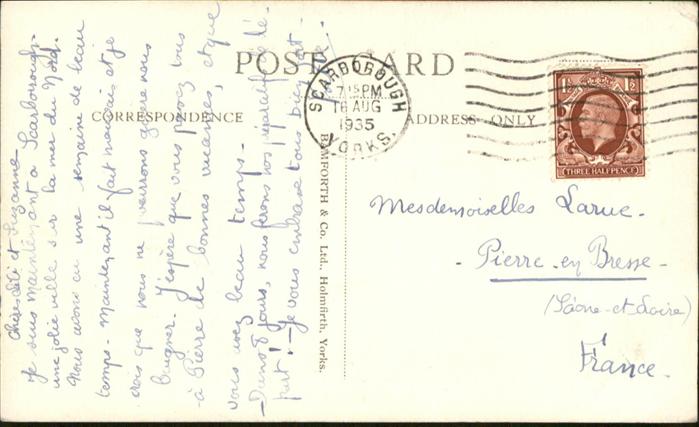 POST CARD
CORRESPONDENCE
ADDRESS ONLY
Chère Lili et Suzanne
Je suis maintenant à Scarborough-
une jolie ville sur la mer du Nord.
Nous avons eu une semaine de beau
temps - Maintenant il fait mauvais et je
crois que nous ne pourrons guère nous
baigner. J'espère que vous passez tous
à Pierre de bonnes vacances, et que
vous avez beau temps -
- Dans 8 jours, nous ferons nos préparatifs de dé-
part! - Je vous embrasse tous bien fort -
BAMFORTH & Co. Ltd., Holmfirth, Yorks.
SCARBOROUGH
7 15 PM
16 AUG
1935
YORKS.
1½ 1½
THREE HALFPENCE
Mesdemoiselles Laruc -
- Pierre - en Bresse -
(Saône-et-Loire)
France.